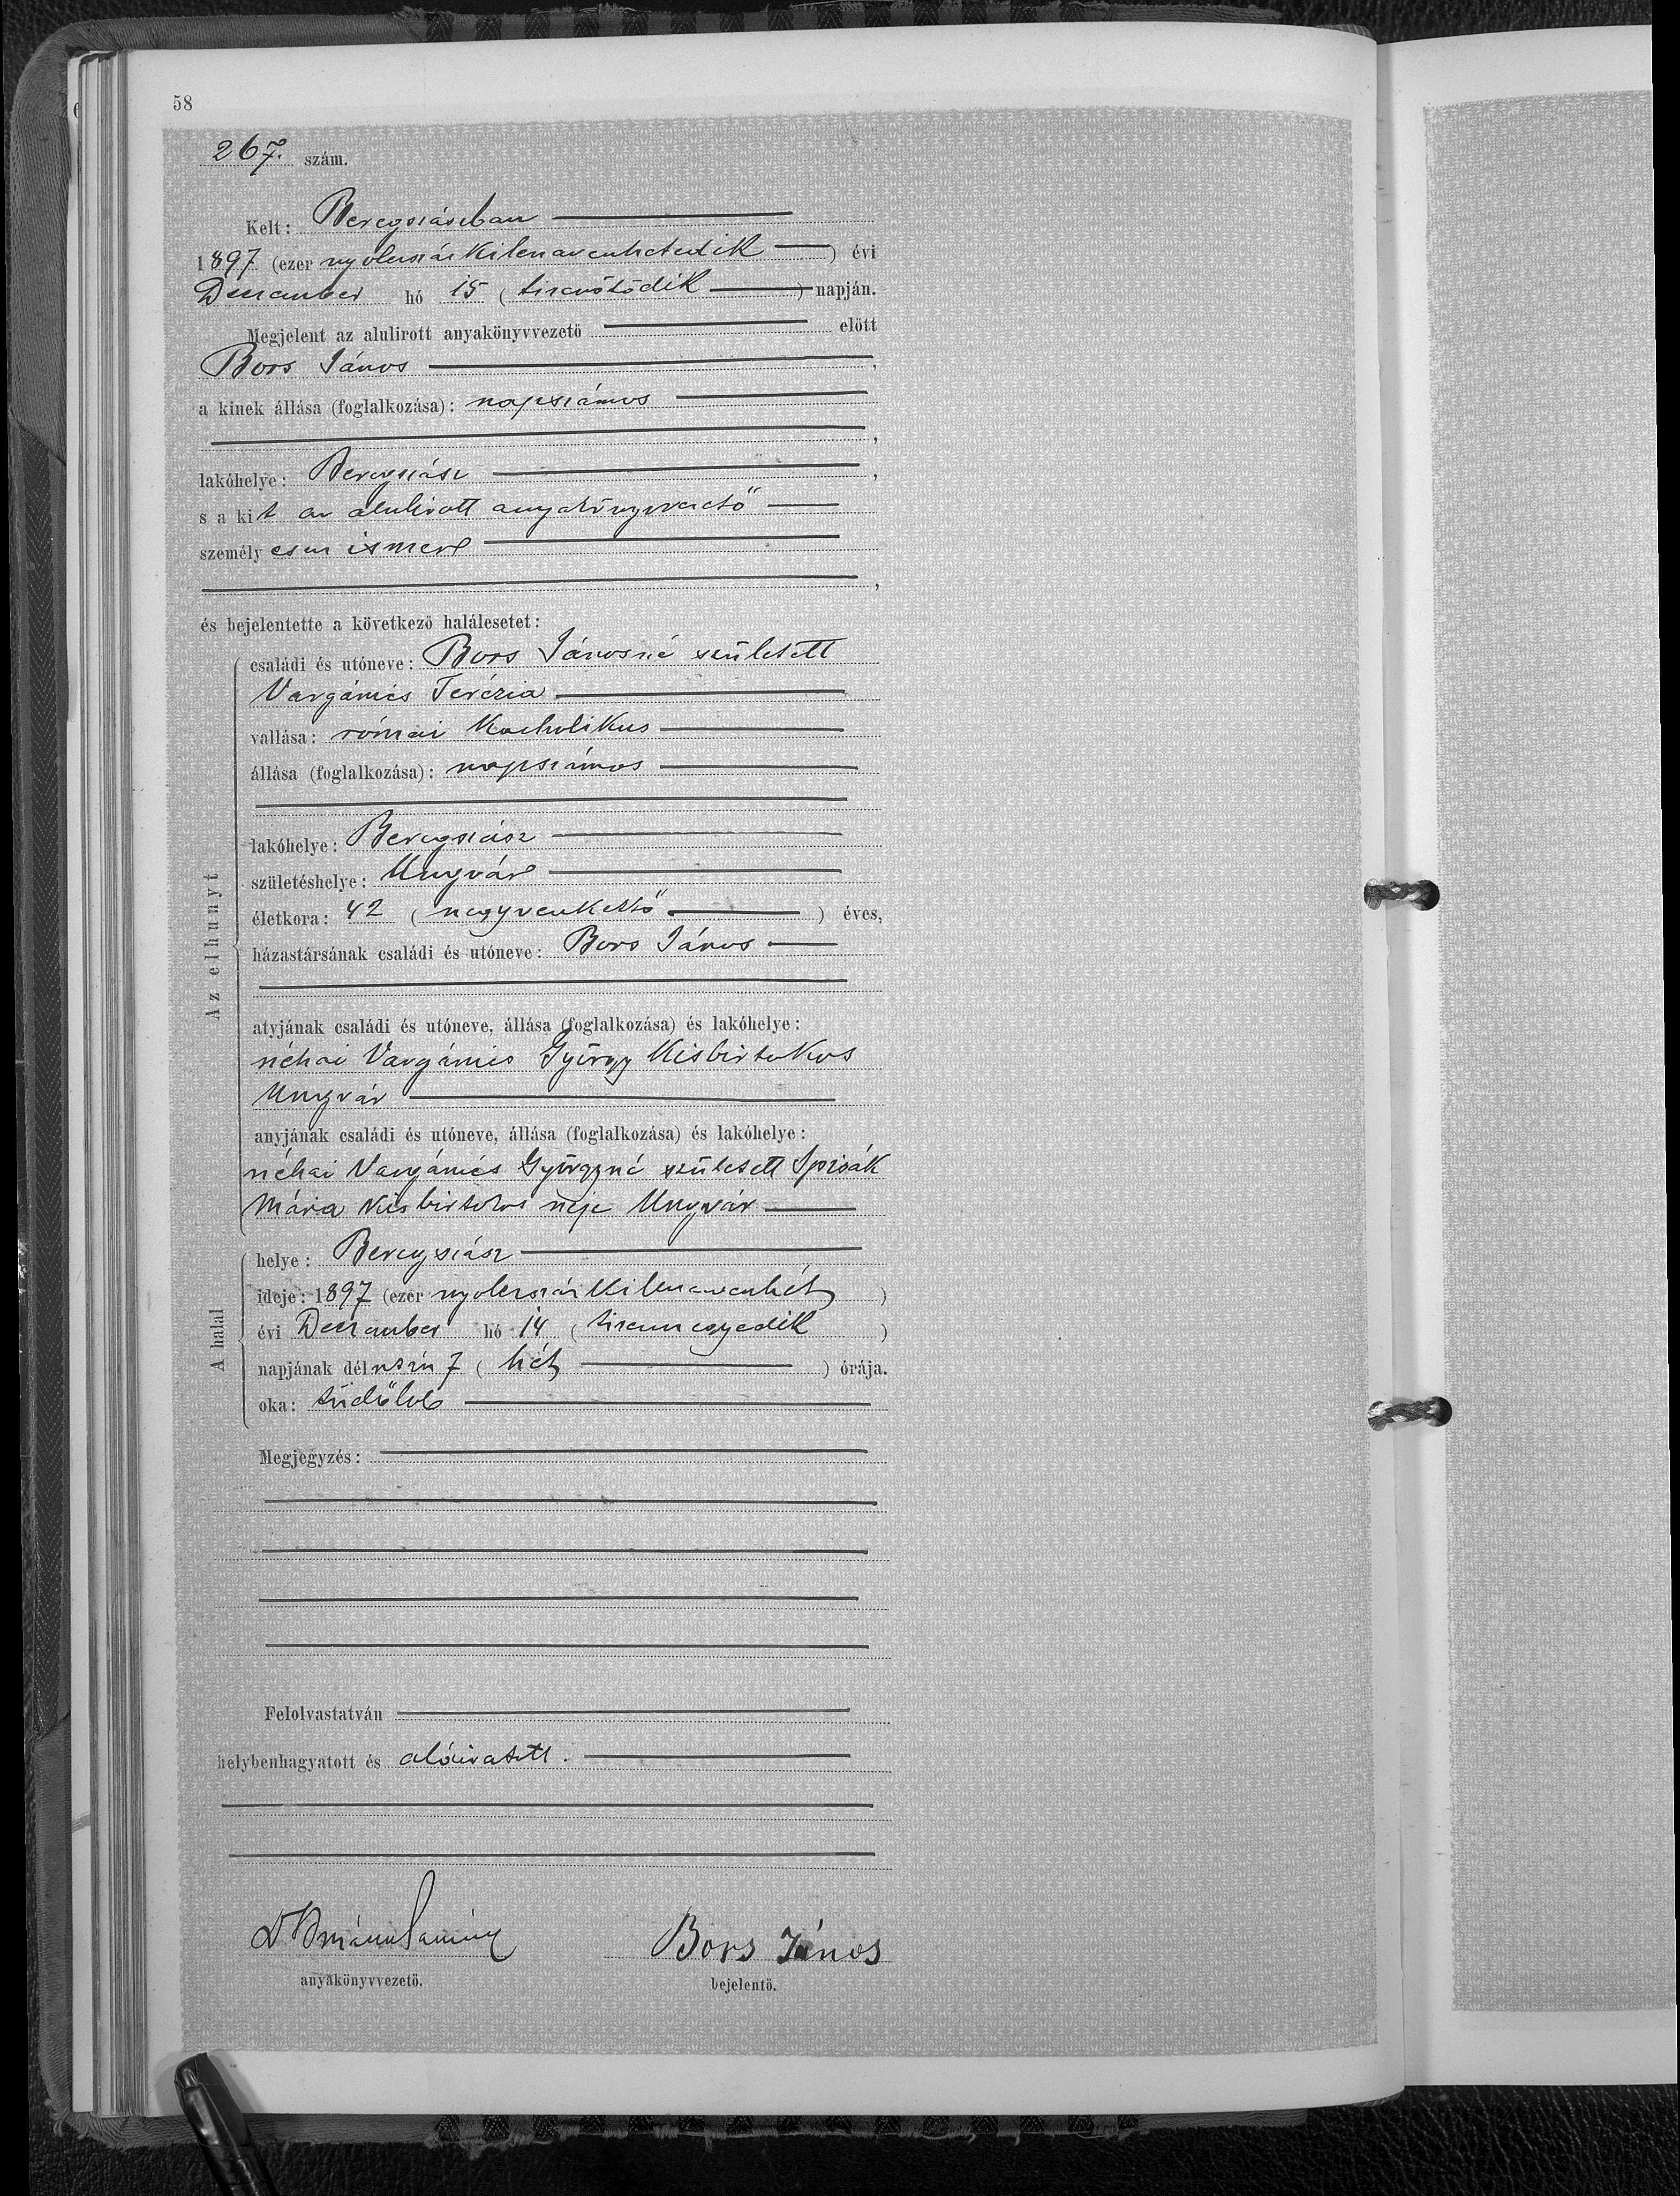 58
267. szám.
Kelt: Beregszászban
1897 (ezer nyolczszázkilenczvenhetedik) évi
Deczember hó 15 (tizenötödik) napján.
Megjelent az alulirott anyakönyvvezető előtt
Bors János,
a kinek állása (foglalkozása): napszámos
,
lakóhelye: Beregszász,
s a kit az alulirott anyakönyvvezető
személyesen ismer
,
és bejelentette a következő halálesetet:
Az elhunyt
családi és utóneve: Bors Jánosné született
Vargánics Terézia
vallása: római katholikus
állása (foglalkozása): napszámos
lakóhelye: Beregszász
születéshelye: Ungvár
életkora: 42 (negyvenkettő) éves,
házastársának családi és utóneve: Bors János
atyjának családi és utóneve, állása (foglalkozása) és lakóhelye:
néhai Vargánics György kisbirtokos
Ungvár
anyjának családi és utóneve, állása (foglalkozása) és lakóhelye:
néhai Vargánics Györgyné született Spisák
Mária kisbirtokos neje Ungvár
A halál
helye: Beregszász
ideje: 1897 (ezer nyolczszázkilenczvenhét)
évi Deczember hó 14 (tizennegyedik)
napjának délután 7 (hét) órája.
oka: tüdőlob
Megjegyzés:
Felolvastatván
helybenhagyatott és aláiratott.
Bors János
anyakönyvvezető.
bejelentő.